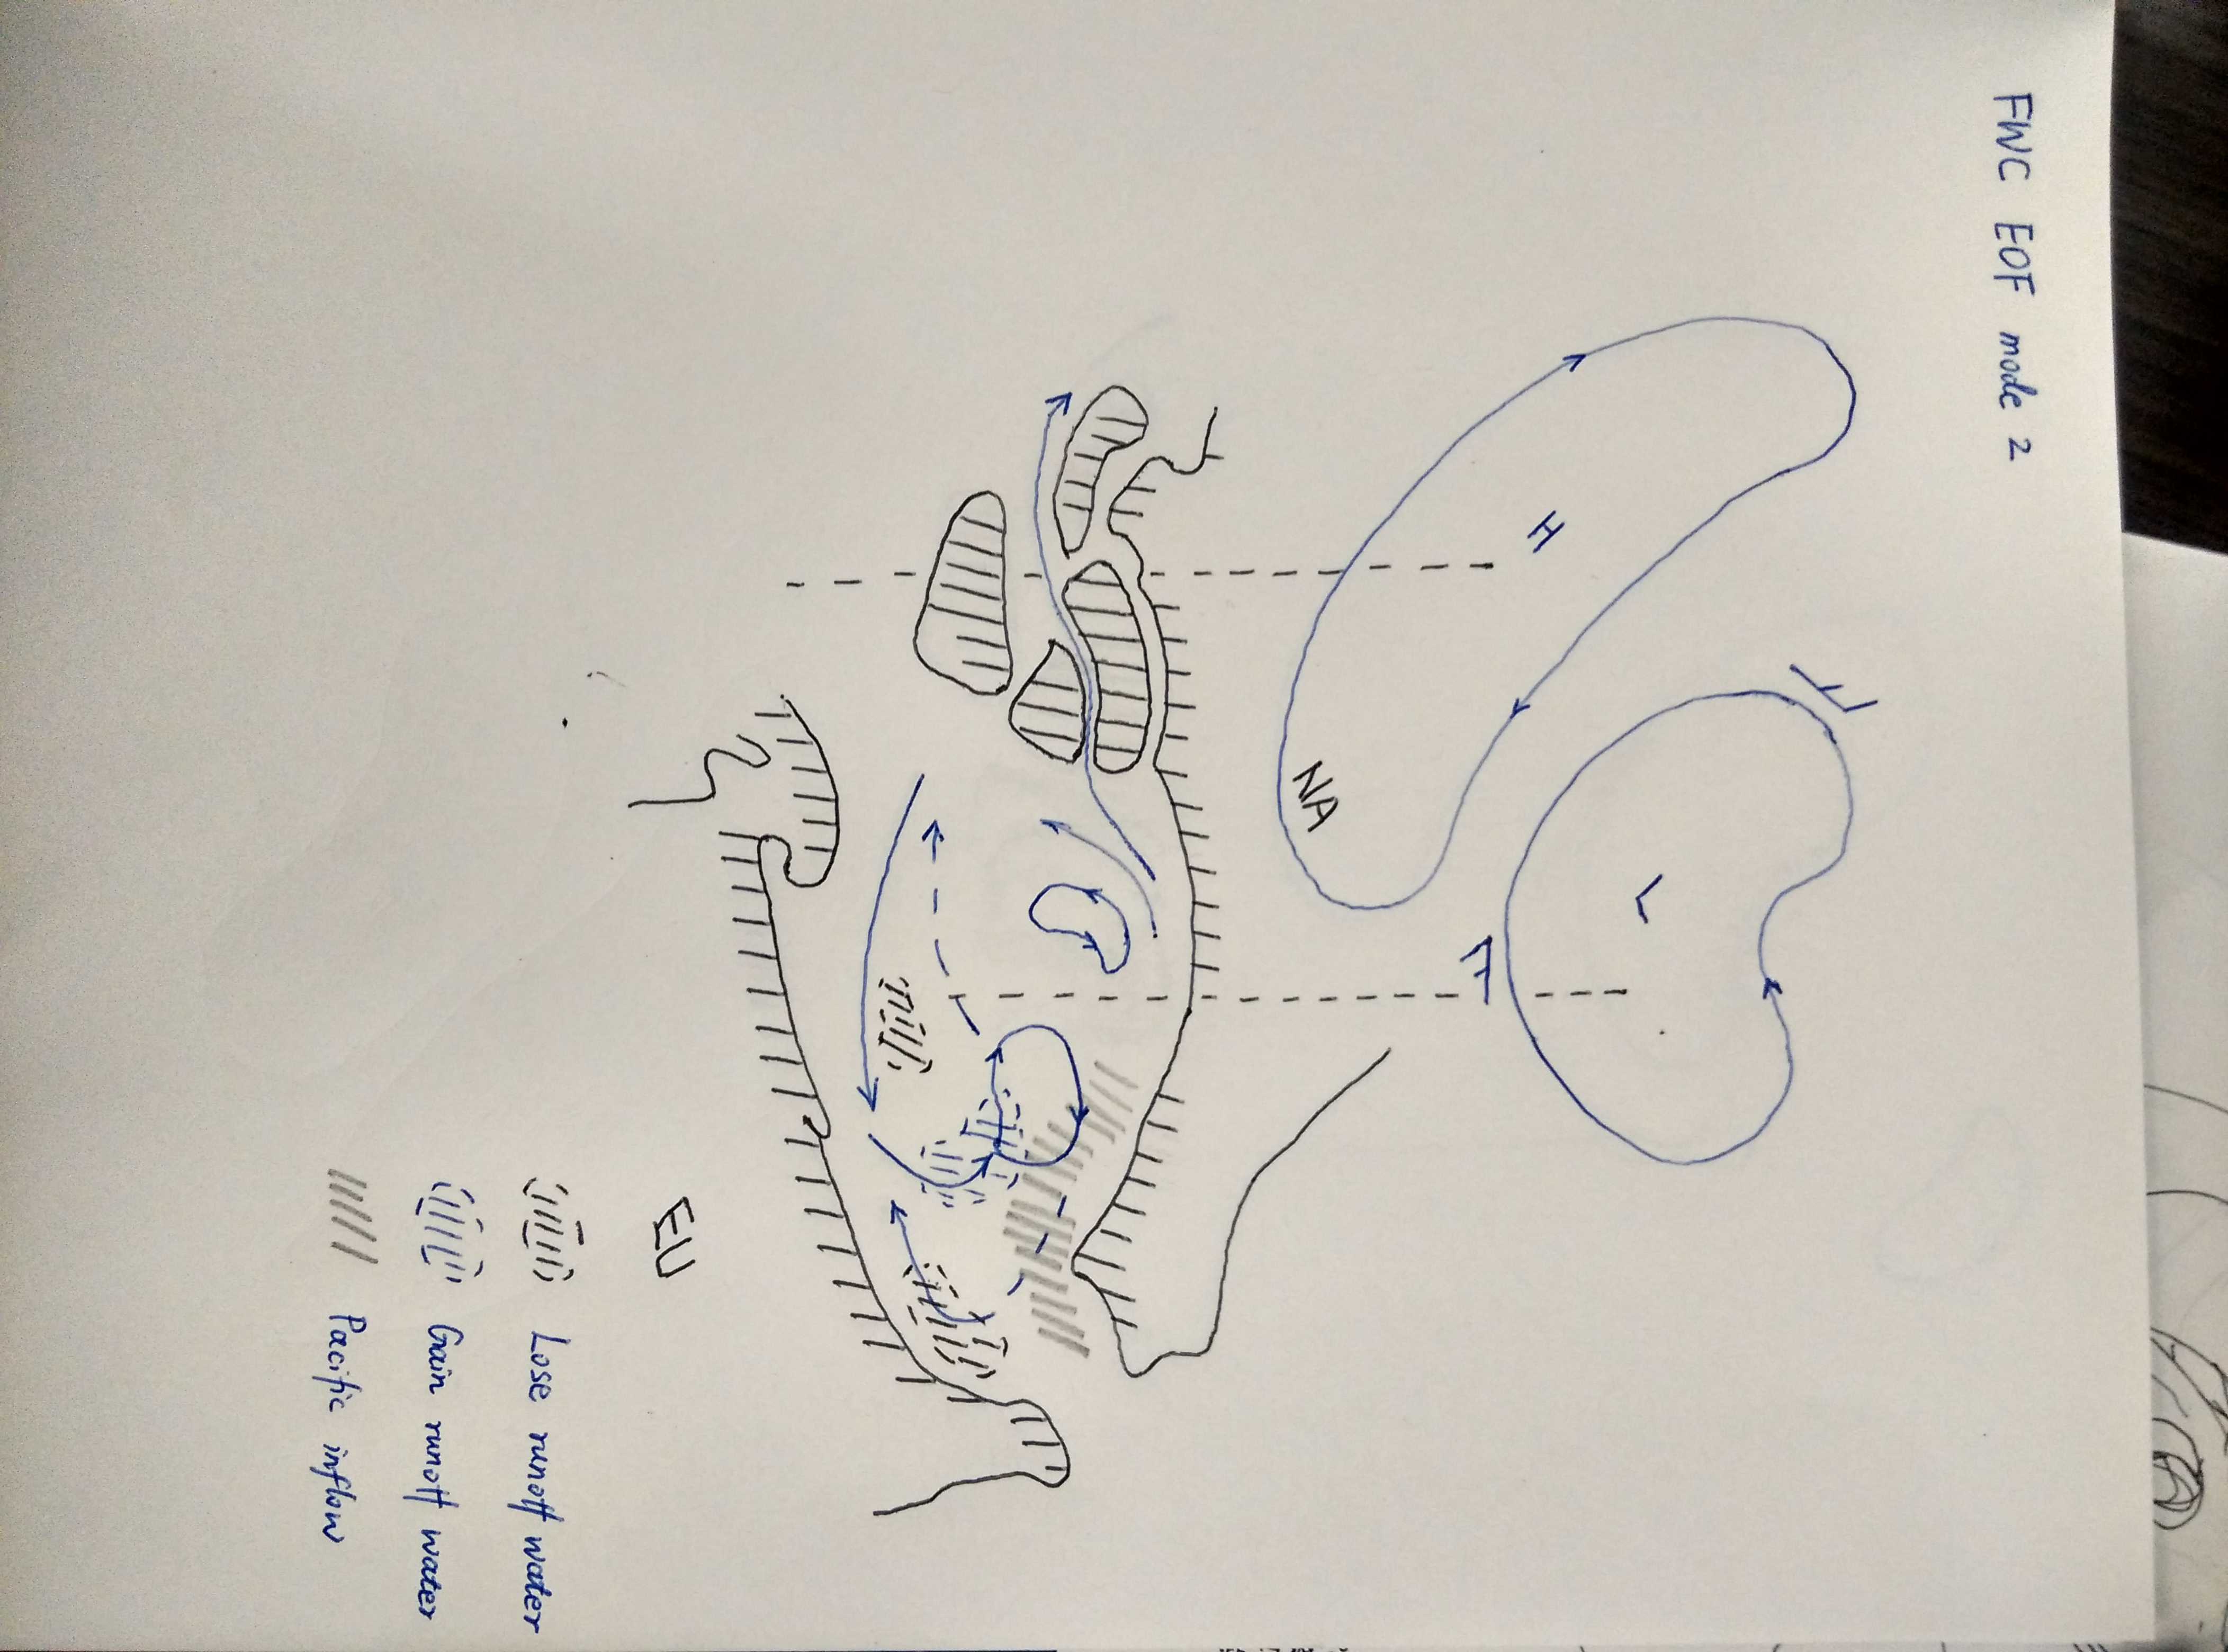 FWC EOF mode 2
H
L
NA
EU
Lose runoff water
Gain runoff water
Pacific inflow